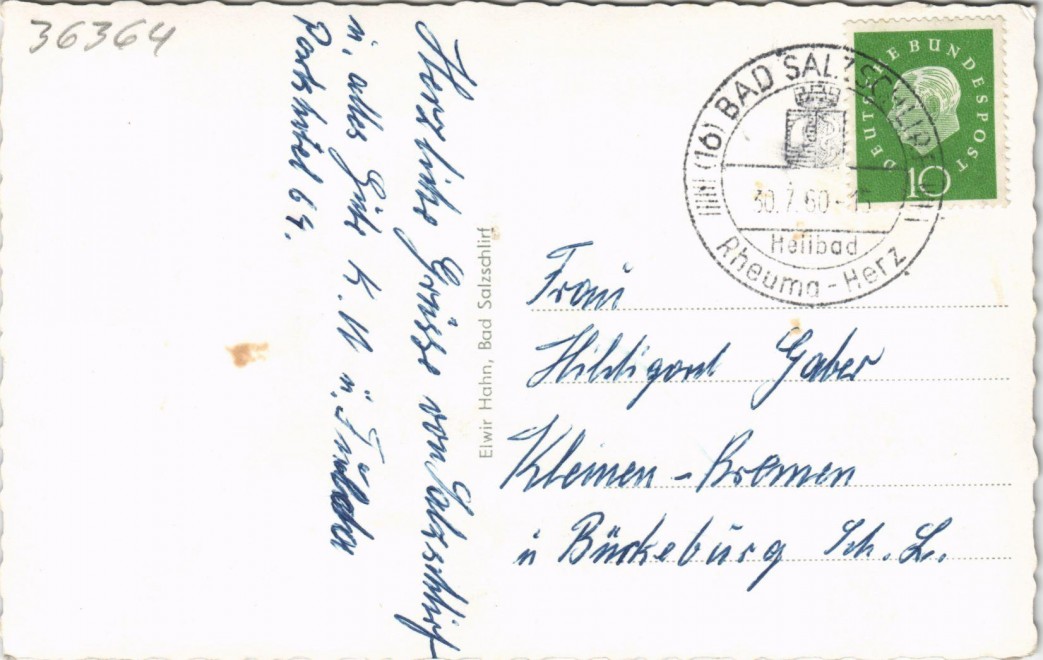 36364
Herzliche Grüsse von Salzschlirf
u. alles Gute K. W u.
BAD SALZSCHLIRF
(16)
30.7.60-15
Heilbad
Rheuma-Herz
DEUTSCHE BUNDESPOST
10
Elwir Hahn, Bad Salzschlirf
Frau
Hildigard Gaber
Kleinen-Bremen
ü Bückeburg Sch. L.